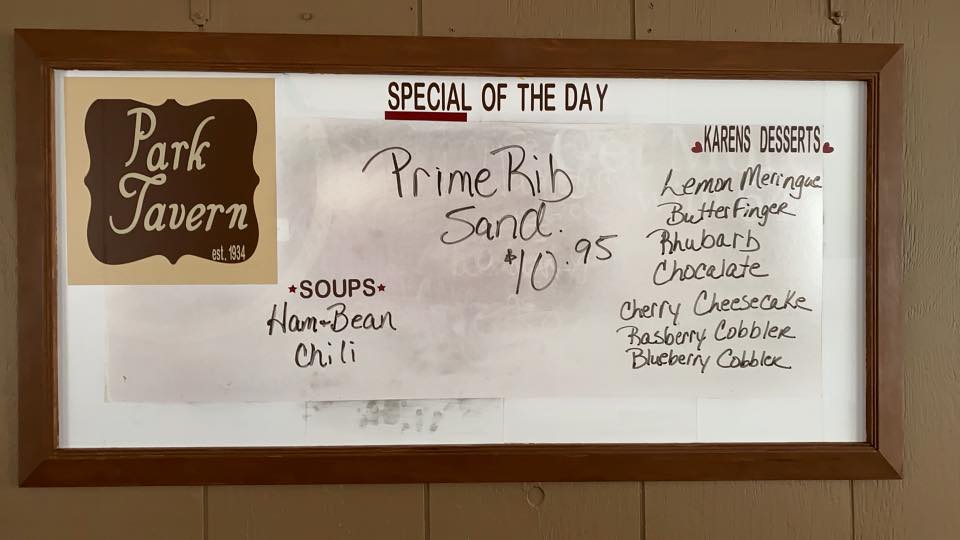 Park
Tavern
est. 1934
SPECIAL OF THE DAY
Prime Rib
Sand.
$10.95
★SOUPS★
Ham + Bean
Chili
♥KARENS DESSERTS♥
Lemon Meringue
Butterfinger
Rhubarb
Chocalate
Cherry Cheesecake
Rasberry Cobbler
Blueberry Cobbler